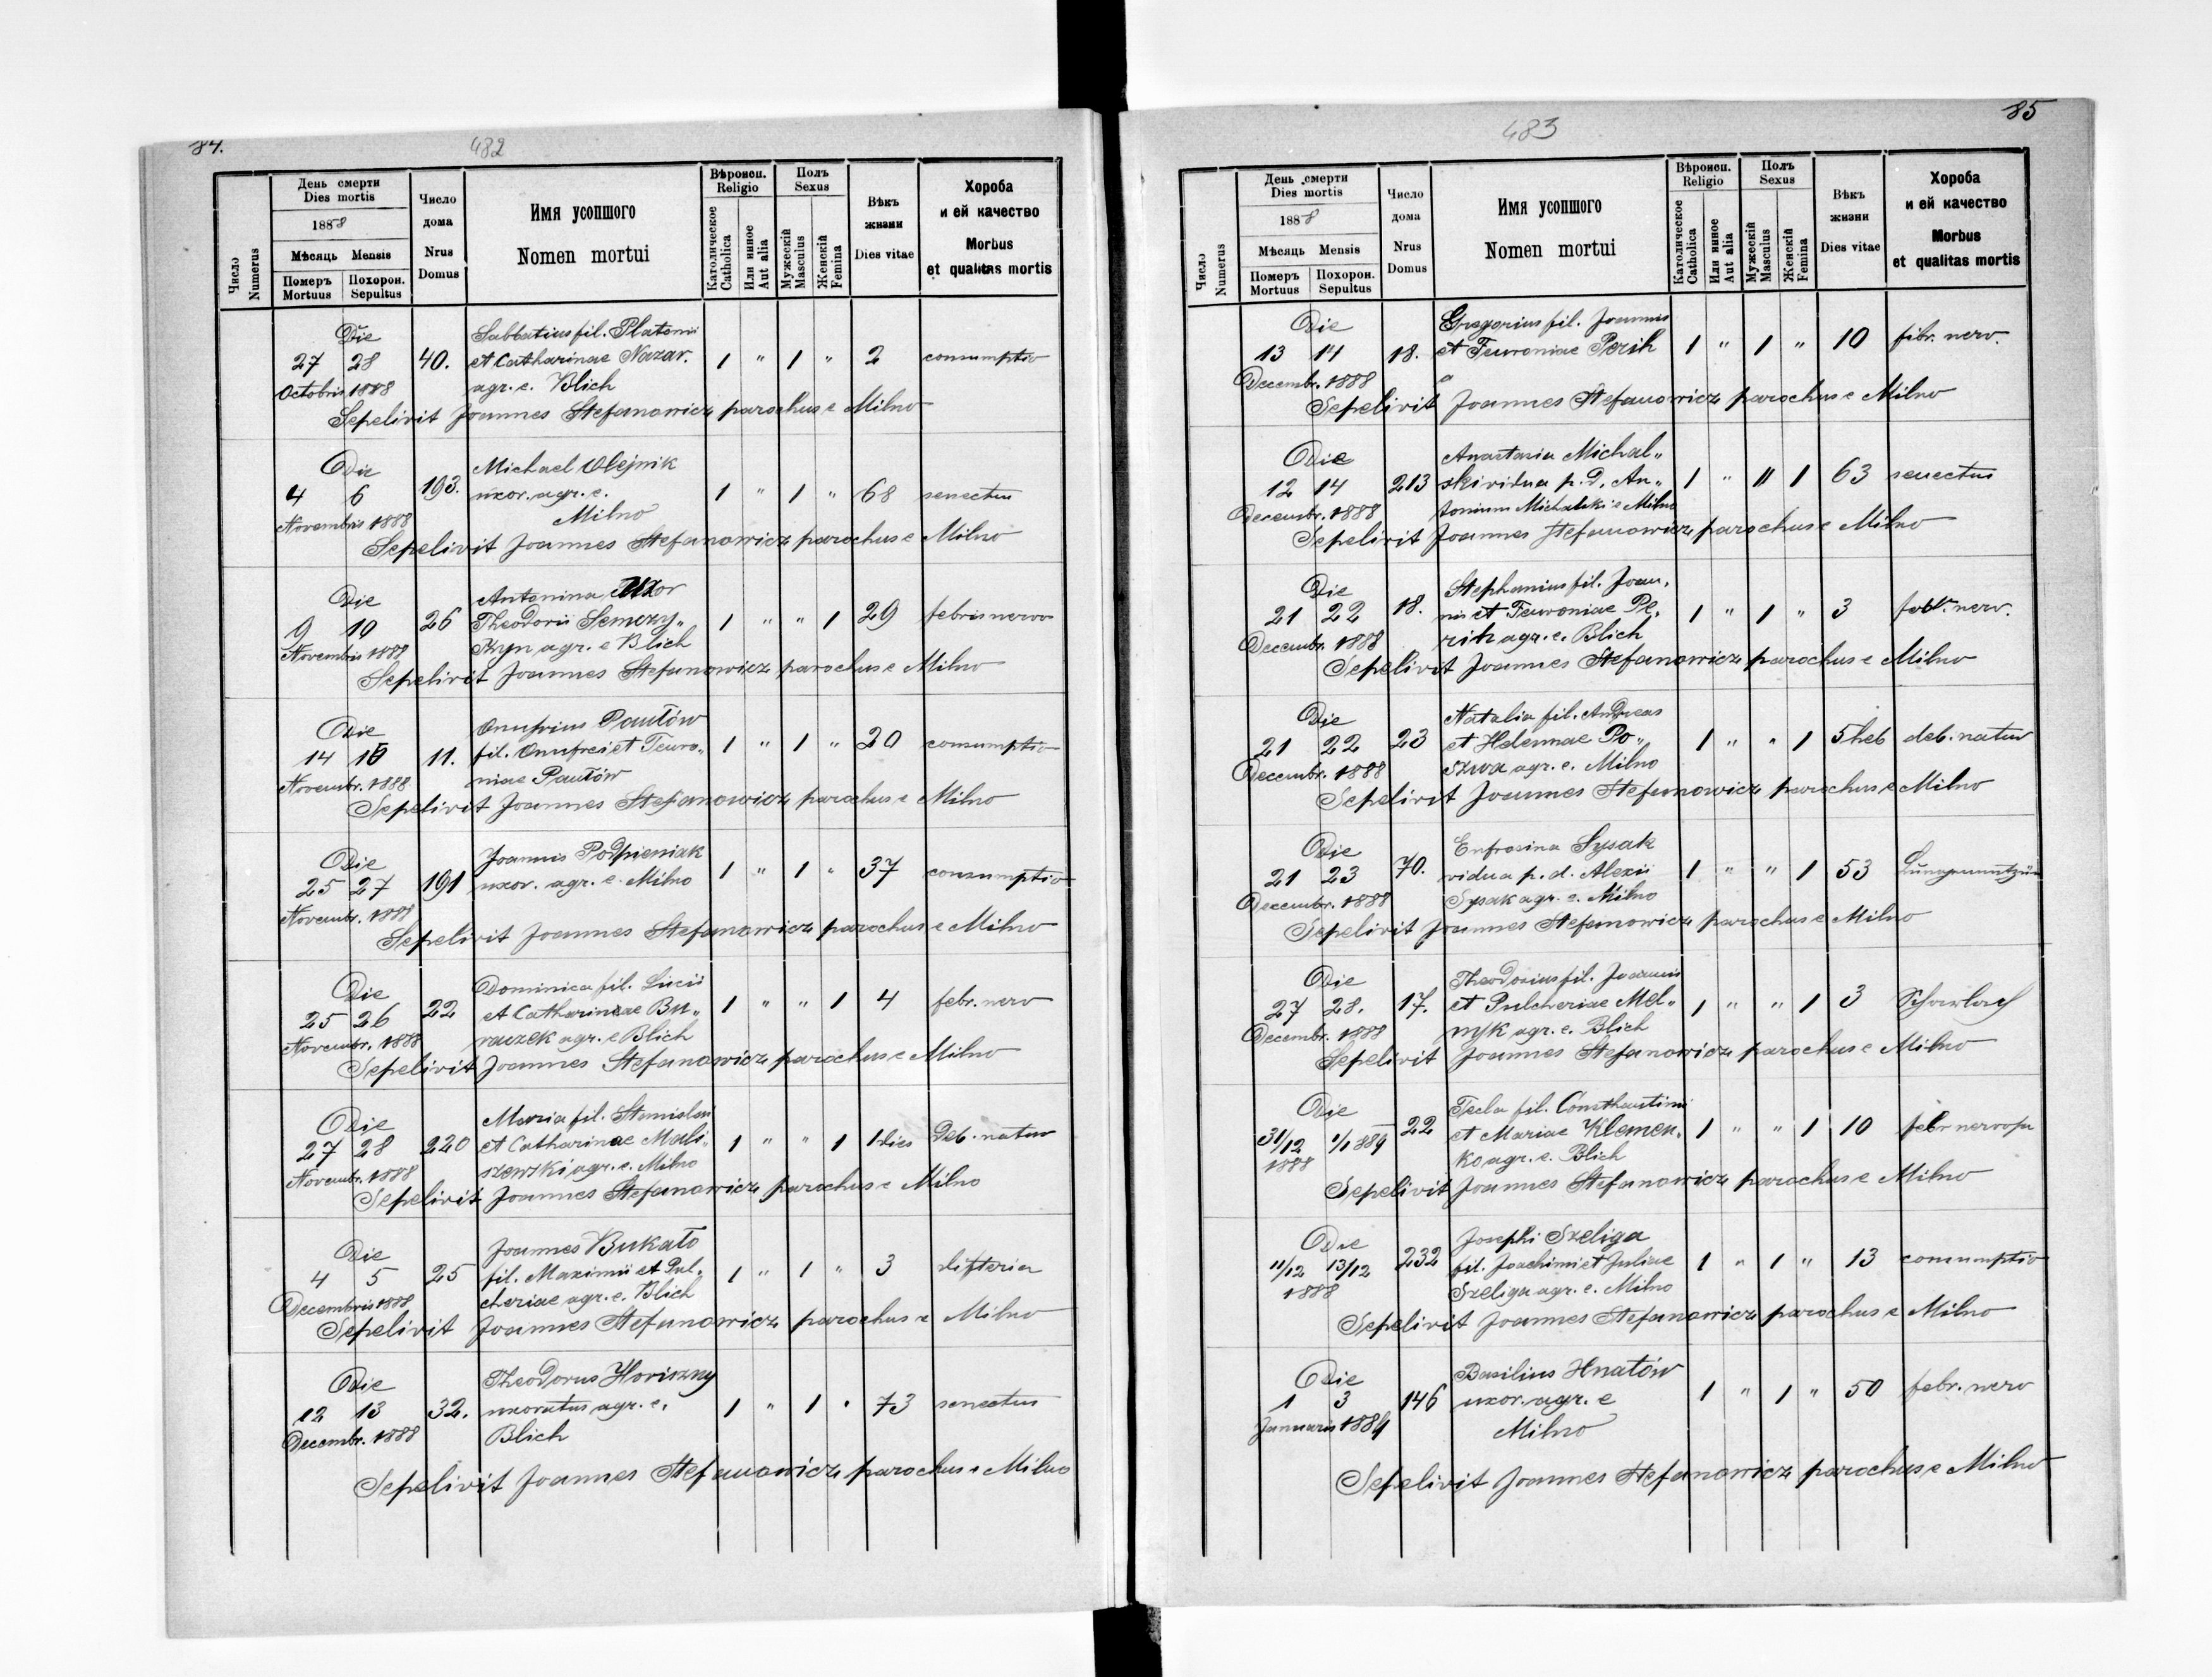 84.
482
Число
Numerus
День смерти
Dies mortis
1888
Мѣсяць Mensis
Померъ Похорон.
Mortuus Sepultus
Число
дома
Nrus
Domus
Имя усопшого
Nomen mortui
Вѣроисп.
Religio
Католическое
Catholica
Или инное
Aut alia
Полъ
Sexus
Мужескій
Masculus
Женскій
Femina
Вѣкъ
жизни
Dies vitae
Хороба
и ей качество
Morbus
et qualitas mortis
Die Sabbatius fil. Platonis
27 28 40. et Catharinae Nazar. 1 " 1 " 2 consumptio
Octobris 1888 agr. e. Blich
Sepelivit Joannes Stefanowicz parochus e Milno
Die Michael Olejnik
4 6 193. uxor. agr. e. 1 " 1 " 68 senectus
Novembris 1888 Milno
Sepelivit Joannes Stefanowicz parochus e Milno
Die Antonina uxor
9 10 26 Theodorii Semczy„ 1 " " 1 29 febris nervo
Novembris 1888 szyn agr. e Blich
Sepelivit Joannes Stefanowicz parochus e Milno
Die Onufrius Pawłów
14 15 11. fil. Onufrei et Tewro„ 1 " 1 " 20 consumptio
Novembr. 1888 niae Pawłów
Sepelivit Joannes Stefanowicz parochus e Milno
Die Joannis Podpieniak
25 27 191 uxor. agr. e. Milno 1 " 1 " 37 consumptio
Novembr. 1888
Sepelivit Joannes Stefanowicz parochus e Milno
Die Dominica fil. Lucii
25 26 22 et Catharinae Bu„ 1 " " 1 4 febr. nerv
Novembr. 1888 raczek agr. e Blich
Sepelivit Joannes Stefanowicz parochus e Milno
Die Maria fil. Stanislai
27 28 220 et Catharinae Mali„ 1 " " 1 1 dies Deb. natur
Novembr. 1888 szewski agr. e. Milno
Sepelivit Joannes Stefanowicz parochus e Milno
Die Joannes Bukato
4 5 25 fil. Maximii et Pul„ 1 " 1 " 3 difteria
Decembris 1888 cheriae agr. e. Blich
Sepelivit Joannes Stefanowicz parochus e Milno
Die Theodorus Horiszny
12 13 32. uxoratus agr. e. 1 " 1 " 73 senectus
Decembr. 1888 Blich
Sepelivit Joannes Stefanowicz parochus e Milno
85
483
Число
Numerus
День смерти
Dies mortis
1888
Мѣсяць Mensis
Померъ Похорон.
Mortuus Sepultus
Число
дома
Nrus
Domus
Имя усопшого
Nomen mortui
Вѣроисп.
Religio
Католическое
Catholica
Или инное
Aut alia
Полъ
Sexus
Мужескій
Masculus
Женскій
Femina
Вѣкъ
жизни
Dies vitae
Хороба
и ей качество
Morbus
et qualitas mortis
Die Gregorius fil. Joannis
13 14 18. et Tewroniae Perih 1 " 1 " 10 febr. nerv.
Decembr. 1888
Sepelivit Joannes Stefanowicz parochus e Milno
Die Anastasia Michal„
12 14 213 ski vidua p. d. An„ 1 " " 1 63 senectus
Decembr. 1888 tonium Michalski e Milno
Sepelivit Joannes Stefanowicz parochus e Milno
Die Stephanius fil. Joan„
21 22 18. nis et Tewroniae Pe„ 1 " 1 " 3 febr. nerv.
Decembr. 1888 rih agr. e. Blich
Sepelivit Joannes Stefanowicz parochus e Milno
Die Natalia fil. Andreas
21 22 23 et Helennae Po„ 1 " " 1 5 heb deb. natur
Decembr. 1888 szwa agr. e. Milno
Sepelivit Joannes Stefanowicz parochus e Milno
Die Enfrosina Sysak
21 23 70. vidua p. d. Alexii 1 " " 1 53
Decembr. 1888 Sysak agr. e. Milno
Sepelivit Joannes Stefanowicz parochus e Milno
Die Theodosius fil. Joannis
27 28. 17. et Pulcheriae Mel„ 1 " " 1 3 Scharlach
Decembr. 1888 nyk agr. e. Blich
Sepelivit Joannes Stefanowicz parochus e Milno
Die Tecla fil. Consthantini
31/12 1/1 889 22 et Mariae Klemen„ 1 " " 1 10 febr nervosa
1888 ko agr. e. Blich
Sepelivit Joannes Stefanowicz parochus e Milno
Die Josephi Szeliga
11/12 13/12 232 fil. Joachimi et Juliae 1 " 1 " 13 consumptio
1888 Szeliga agr. e. Milno
Sepelivit Joannes Stefanowicz parochus e Milno
Die Basilius Hnatów
1 3 146 uxor. agr. e 1 " 1 " 50 febr. nerv
Januaris 1889 Milno
Sepelivit Joannes Stefanowicz parochus e Milno